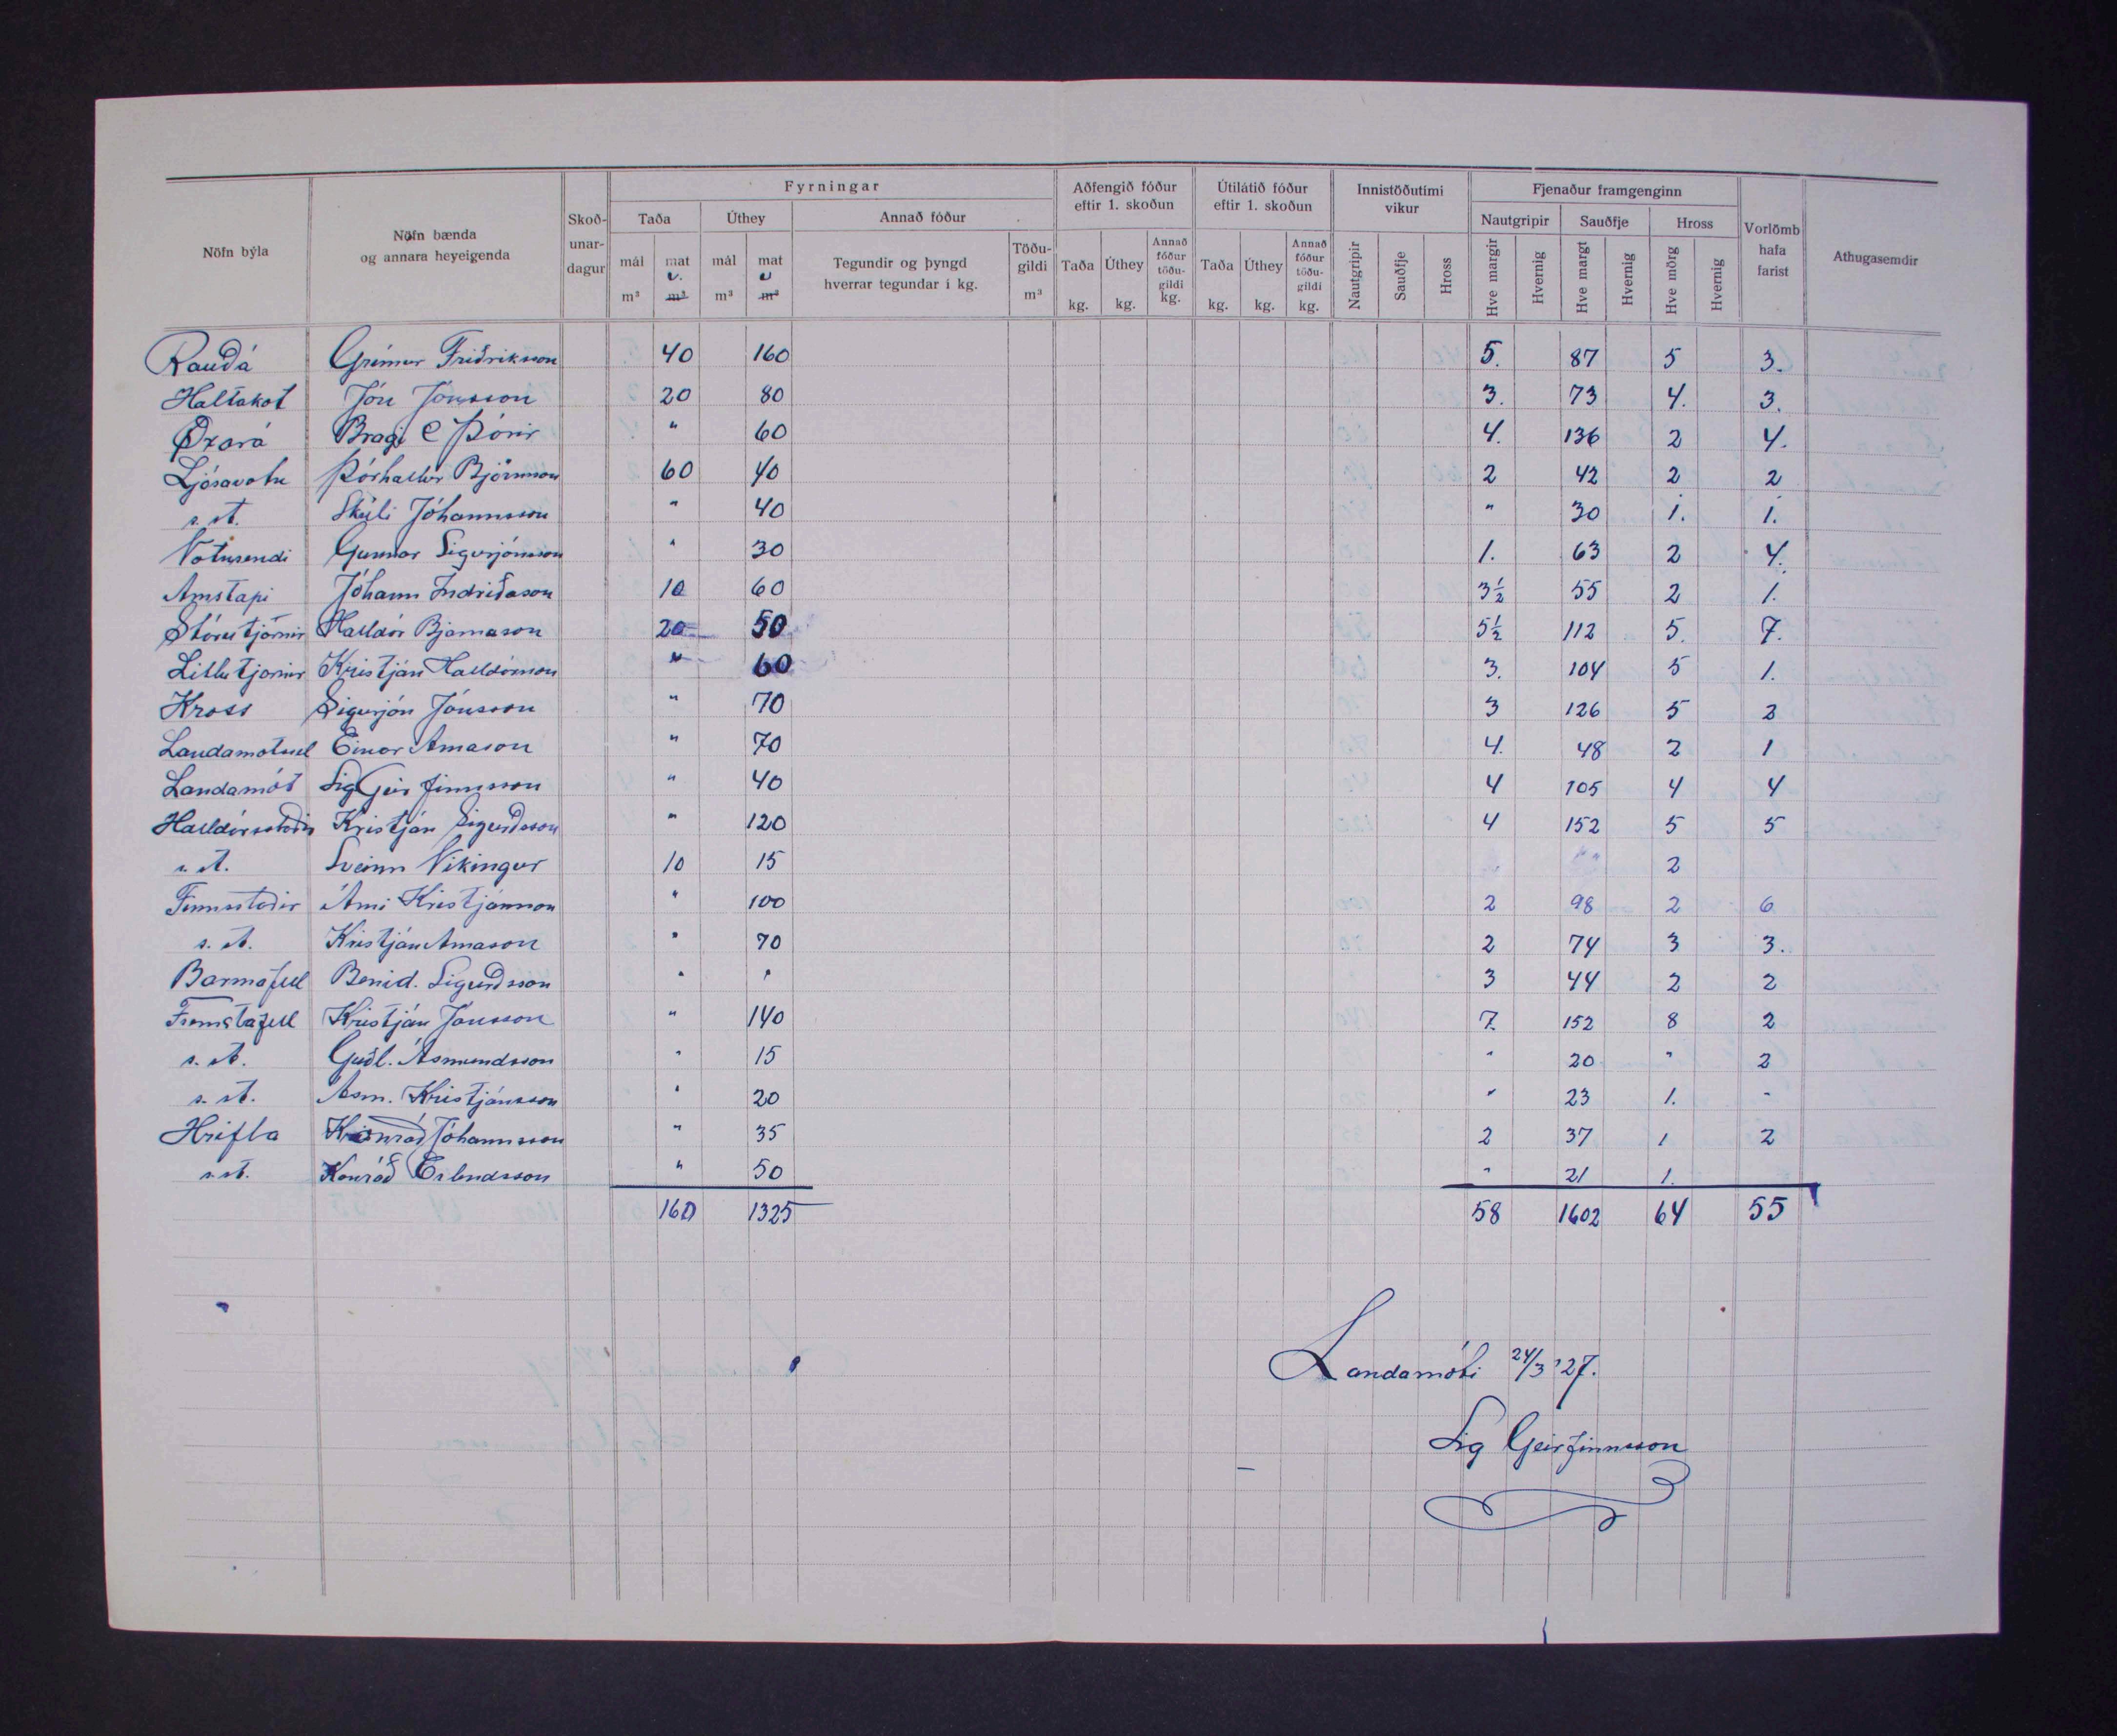 Fyrningar
Aðfengið fóður eftir 1. skoðun
Útilátið fóður eftir 1. skoðun
Innistöðutími vikur
Fjenaður framgenginn
Nöfn býla
Nöfn bænda og annara heyeigenda
Skoð-unar-dagur
Taða
Úthey
Annað fóður
Nautgripir
Sauðfje
Hross
Vorlömb hafa farist
Athugasemdir
mál m³
mat v. m³
mál m³
mat v m³
Tegundir og þyngd hverrar tegundar í kg.
Töðu-gildi m³
Taða kg.
Úthey kg.
Annað fóður töðu-gildi kg.
Taða kg.
Úthey kg.
Annað fóður töðu-gildi kg.
Nautgripir
Sauðfje
Hross
Hve margir
Hvernig
Hve margt
Hvernig
Hve mörg
Hvernig
Rauðá Grímur Friðriksson 40 160 5. 87 5 3.
Haltakot Jón Jónsson 20 80 3. 73 4. 3.
Öxará Bragi & Þórir " 60 4. 136 2 4.
Ljósavatn Þórhallur Björnsson 60 40 2 42 2 2
s. st. Skúli Jóhannsson " 40 " 30 1. 1.
Vatnsendi Gunnar Sigurjónsson " 30 1. 63 2 4.
Arnstapi Jóhann Indriðason 10 60 3½ 55 2 1.
Stórutjörnir Halldór Bjarnason 20 50 5½ 112 5. 7.
Litlutjarnir Kristján Halldórsson " 60 3. 104 5 1.
Kross Sigurjón Jónsson " 70 3 126 5 2
Landamotssel Einar Árnason " 70 4. 48 2 1
Landamót Sig Geirfinnsson " 40 4 105 4 4
Halldórsstaðir Kristján Sigurðsson " 120 4 152 5 5
s. st. Sveinn Víkingur 10 15 2
Finnsstaðir Árni Kristjánsson " 100 2 98 2 6
s. st. Kristján Árnason " 70 2 74 3 3.
Barnafell Benid. Sigurðsson " " 3 44 2 2
Fremstafell Kristján Jónsson " 140 7. 152 8 2
s. st. Guðl. Ásmundsson " 15 " 20 " 2
s. st. Ásm. Kristjánsson " 20 " 23 1. -
Hrifla Jóhannsson " 35 2 37 1 2
s. st. Konráð Erlendsson " 50 " 21 1.
160 1325 58 1602 64 55
Landamóti 24/3 '27.
Sig Geirfinnsson